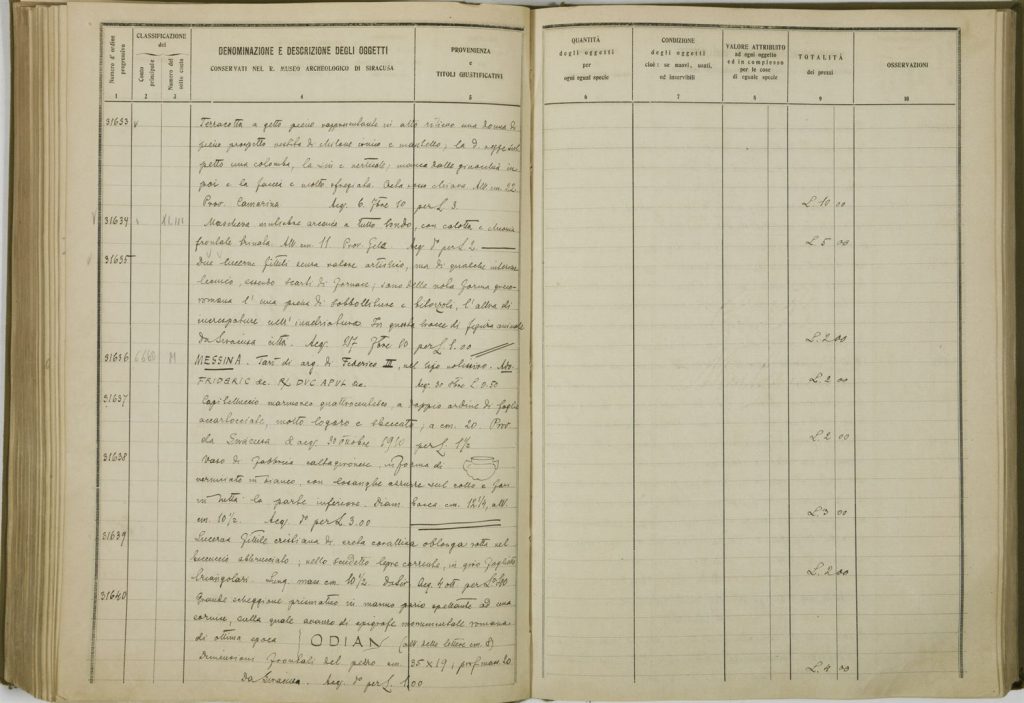 Numero d'ordine progressivo
CLASSIFICAZIONE
del
Conto principale
Numero del sotto conto
DENOMINAZIONE E DESCRIZIONE DEGLI OGGETTI
CONSERVATI NEL R. MUSEO ARCHEOLOGICO DI SIRACUSA
PROVENIENZA
e
TITOLI GIUSTIFICATIVI
1 2 3 4 5
31633 Terracotta a getto pieno rappresentante in alto rilievo una donna di
pieno prospetto vestita di chitone ionico e mantello; la d. regge sul
petto una colomba, la sin e verticale; manca dalle ginocchia in
poi e la faccia e molto sfregiata. Creta chiara. Alt. cm. 22.
Prov. Camarina Acq. 6. 7bre 10 per L 3.
31634 XLIII Maschera muliebre arcaica a tutto tondo, con calotta e chioma
frontale Alt. cm. 11 Prov. Gela Acq. d° per L 2.
31635 Due lucerne fittili senza valore artistico, ma di qualche interesse
tecnico, essendo scarti di fornace; sono delle nota forma greco-
romana l'una piena di sobbolliture e l'altra di
screpature nell' Per questa tracce di figura animale
Da Siracusa città. Acq. 27 7bre 10 per L 1.00
31636 6660 M MESSINA. Tarì di arg. di Federico III, nel tipo notissimo.
FRIDERIC DVC APVL Acq. 30 L 0.50
31637 Capitelluccio marmoreo quattrocentesco, a doppio ordine di foglie
accartocciate, molto logoro e sbeccato; a cm. 20. Prov.
da Siracusa acq. 30 ottobre 1910 per L. 1½
31638 Vaso di fabbrica caltagironese, in forma di
verniciato in bianco, con losanghe azzurre sul collo e
in netta la parte inferiore. Diam. bocca cm. 12¼, alt.
cm. 10½. Acq. d° per L 3.00
31639 Lucerna fittile cristiana di creta corallina oblonga rotta nel
beccuccio abbruciato; nello scudetto lepre corrente, in giro foglioline
triangolari. Lung. mass cm. 10½. Acq. 4 ott per L°
31640 Grande scheggione prismatico in marmo pario spettante ad una
cornice, sulla quale avanzo di epigrafe monumentale romana
di ottima epoca ODIAN (alt delle lettere cm. 8)
Dimensioni frontali del pezzo cm. 35 x 19; prof. mass. 20.
Da Siracusa. Acq. d° per L. 1.00
QUANTITÀ
degli oggetti
per
ogni egual specie
CONDIZIONE
degli oggetti
cioè: se nuovi, usati,
ed inservibili
VALORE ATTRIBUITO
ad ogni oggetto
ed in complesso
per le cose
di eguale specie
TOTALITÀ
dei prezzi
OSSERVAZIONI
6 7 8 9 10
L. 10 00
L. 5 00
L. 2 00
L. 2 00
L. 2 00
L. 3 00
L. 2 00
L. 4 00